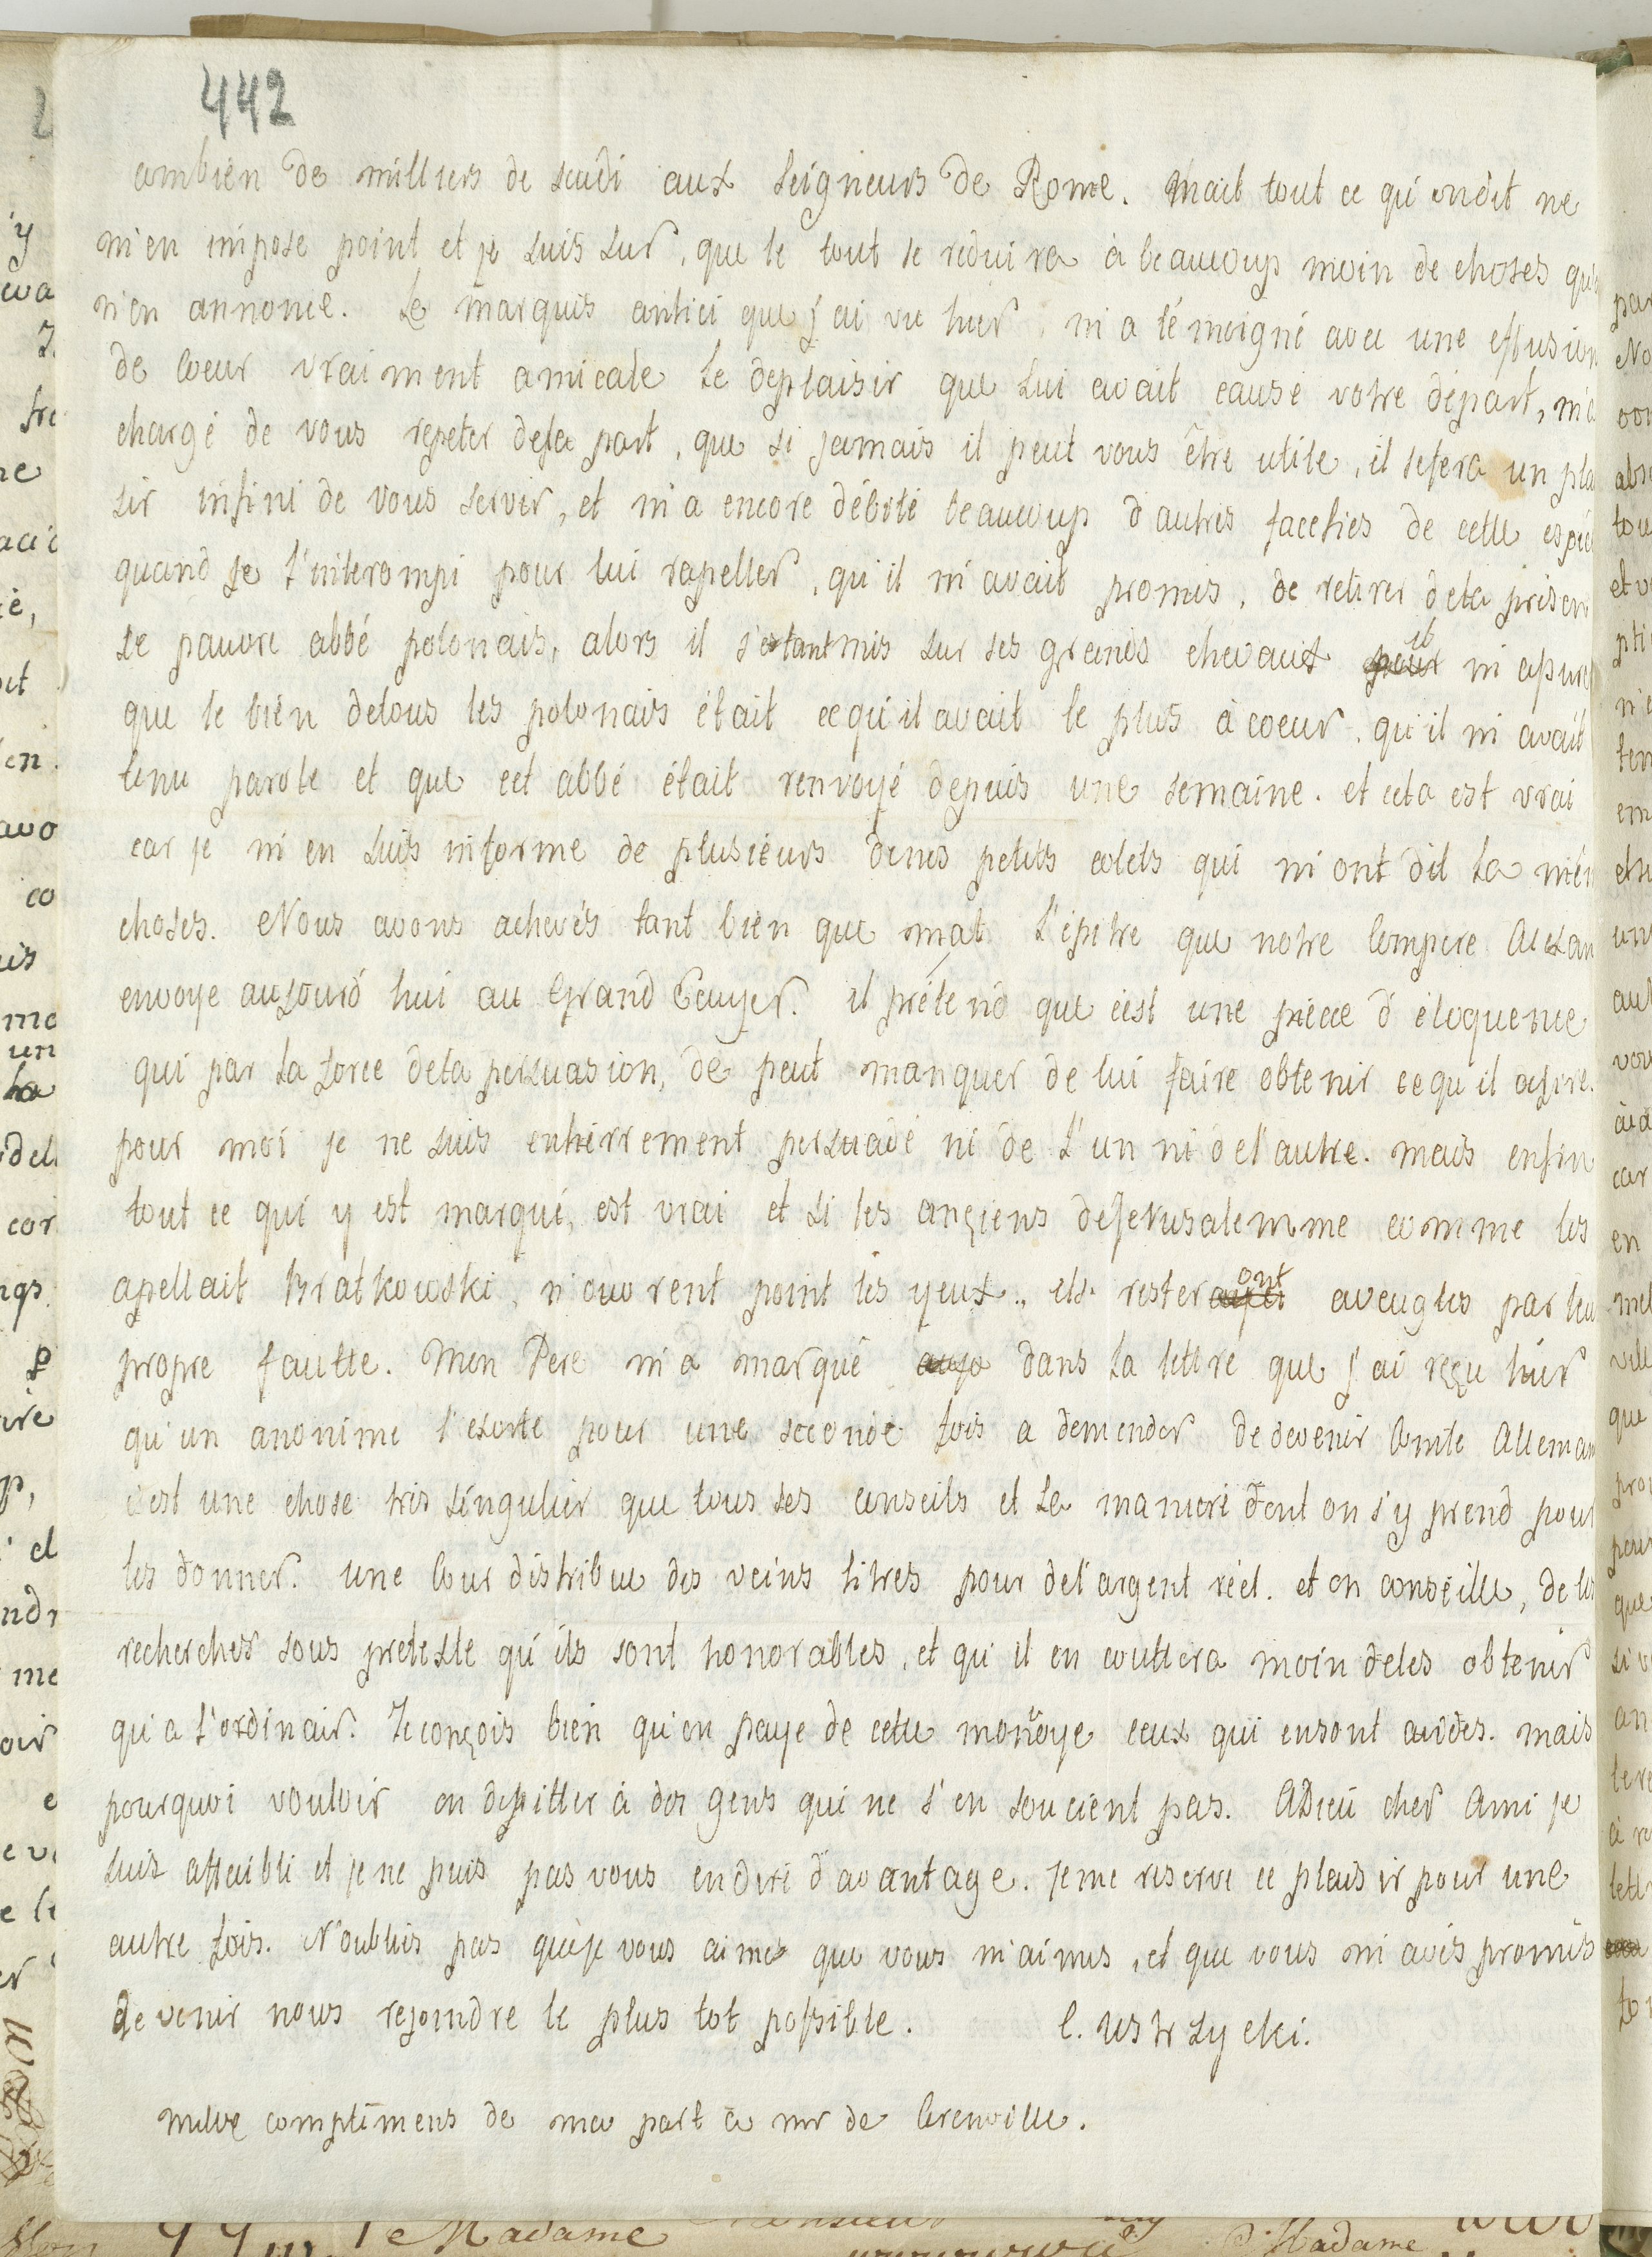 442
combien de milliers de scudi aux Seigneurs de Rome. Mais tout ce qu'on dit ne
m'en impose point et je suis sur, que le tout se reduira à beaucoup moin de choses qu'
n'en annonce. Le marquis antici que j'ai vu hier, m'a témoigné avec une effusion
de Coeur vraiment amicale le deplaisir que lui avait causé votre départ, m'a
chargé de vous repeter de sa part, que si jamais il peut vous être utile, il se fera un plai
sir infini de vous servir, et m'a encore débité beaucoup d'autres faceties de cette espéc
quand je l'interompi pour lui rapeller, qu'il m'avait promis, de retirer de la prison
le pauvre abbé polonais, alors il s'estant mis sur ses grands chevaux pour il m'assure
que le bién de tous les polonais était ce qu'il avait le plus à coeur, qu'il m'avait
tenu parole et que cet abbé était renvoyé depuis une semaine. et cela est vrai
car je m'en suis informé de plusiéurs de nos petits colets qui m'ont dit la mém
choses. Nous avons achevés tant bien que mal l'épitre que notre Compere Alexan
envoye aujourd'hui au Grand Ecuyer. il prétend que c'est une piéece d'éloquence
qui par la force de la persuasion, de peut manquer de lui faire obtenir ce qu'il aspire.
pour moi je ne suis entierrement persuadé ni de l'un ni de l'autre. mais enfin
tout ce qui y est marqué, est vrai et si les ançiens de Jerusalemme comme les
apellait Bratkowski, n'ouvrent point les yeux, ils resteront aveugles par leu
propre fautte. Mon Pere m'a marqué dans la lettre que j'ai reçu hier
qu'un anonime l'exorte pour une seconde fois a demender de devenir Comte Alleman
c'est une chose tris singulier que tous ses conseils et la manieri dont on s'y prend pour
les donner. une Cour distribue des veins titres pour de l'argent réel. et on conseille, de les
recherches sous pretexte qu'ils sont honorables, et qu'il en couttera moin de les obtenir
qu'a l'ordinair. Je conçois bien qu'on paye de cette monoye ceux qui en sont avides. mais
pourquoi vouloir en depitter à des gens qui ne s'en soucient pas. Adieu cher Ami je
suis affaibli et je ne puis pas vous en diré d'avantage. je me reserve ce plaisir pour une
autre fois. N'oubliés pas que je vous aimes que vous m'aimés, et que vous m'avés promis
de venir nous rejoindre le plus tot possible. C. Ustrzycki.
mille complimens de ma part à mr de Grenville.